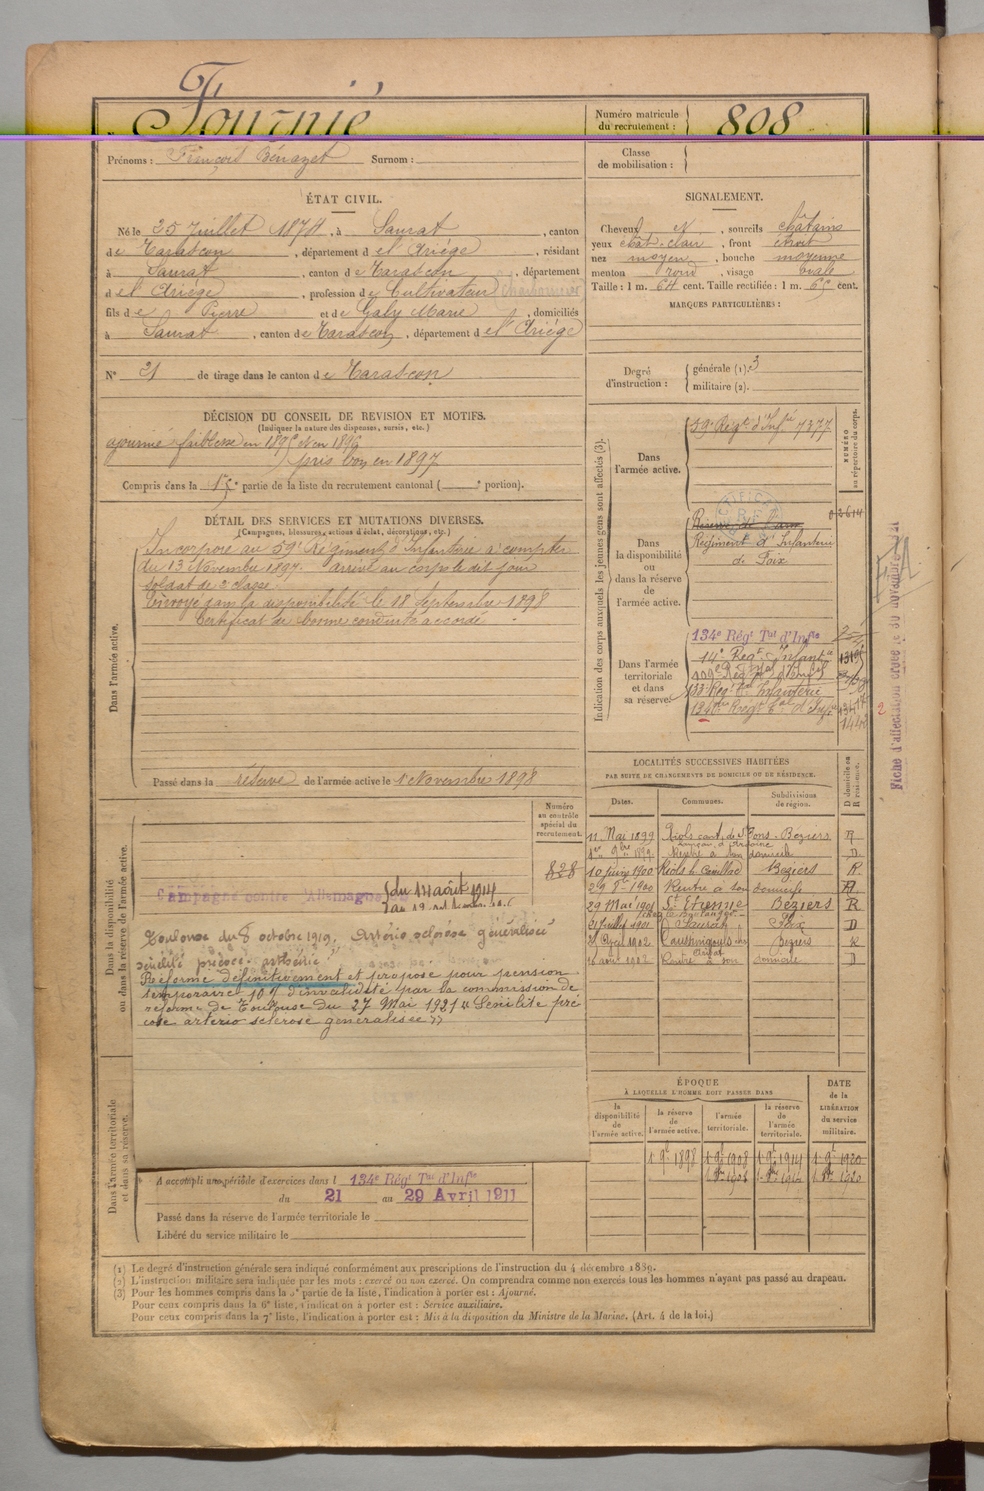 Fournié
Numéro matricule du recrutement : 808
Prénoms : François Bénazet Surnom :
Classe de mobilisation :
ÉTAT CIVIL.
Né le 25 Juillet 1874, à Saurat, canton
de Tarascon, département de l'Ariège, résidant
à Saurat, canton de Tarascon, département
de l'Ariège, profession de Cultivateur
fils de Pierre et de Galy Marie, domiciliés
à Saurat, canton de Tarascon, département de l'Ariège
N° 21 de tirage dans le canton de Tarascon
SIGNALEMENT.
Cheveux N, sourcils châtains
yeux chât. clair, front étroit
nez moyen, bouche moyenne
menton rond, visage ovale
Taille : 1 m. 64 cent. Taille rectifiée : 1 m. 65 cent.
MARQUES PARTICULIÈRES :
Degré d'instruction : générale (1). 3
militaire (2).
DÉCISION DU CONSEIL DE REVISION ET MOTIFS.
(Indiquer la nature des dispenses, sursis, etc.)
ajourné faiblesse en 1895 et en 1896
pris bon en 1897
Compris dans la 1e partie de la liste du recrutement cantonal ( portion).
DÉTAIL DES SERVICES ET MUTATIONS DIVERSES.
(Campagnes, blessures, actions d'éclat, décorations, etc.)
Dans l'armée active.
Incorporé au 59e Régiment d'Infanterie à compter
du 13 Novembre 1897. arrivé au corps le dit jour
soldat de 2e classe.
Envoyé dans la disponibilité le 18 Septembre 1898
Certificat de bonne conduite accordé
Passé dans la réserve de l'armée active le 1 Novembre 1898
Indication des corps auxquels les jeunes gens sont affectés (3).
NUMÉRO au répertoire du corps.
Dans l'armée active.
59e Regt d'Infie 7377
Dans la disponibilité ou dans la réserve de l'armée active.
Réserve de l'arm
Régiment d'Infanterie
de Foix
Dans l'armée territoriale et dans sa réserve.
134e Régt Tal d'Infie
14e Regt Infant
133 Reg Tal Infanterie
Fiche d'affectation
LOCALITÉS SUCCESSIVES HABITÉES
PAR SUITE DE CHANGEMENTS DE DOMICILE OU DE RÉSIDENCE.
Dates. Communes. Subdivisions de région. D domicile ou R résidence.
11 Mai 1899 Riols cant. de St Pons Beziers R
Rentré à son domicile D
10 Juin 1900 Riols Beziers R.
29 8bre 1900 Rentré à son domicile
29 Mai 1901 St Etienne Beziers R
21 Juillet 1901 Saurat Foix D
1902 Beziers R
1902 Rentré à son domicile D
Numéro au contrôle spécial du recrutement.
828
Dans la disponibilité ou dans la réserve de l'armée active.
Campagne contre l'Allemagne du 14 août 1914
Toulouse du 8 octobre 1919. Artério sclérose généralisée
sénilité précoce. asthénie
Réformé définitivement et proposé pour pension
temporaire 10% d'invalidité par la commission de
réforme de Toulouse du 27 Mai 1921 « Sénilité pré
coce artério sclérose généralisée »
Dans l'armée territoriale et dans sa réserve.
A accompli une période d'exercices dans l 134e Régt Tal d'Infie
du 21 au 29 Avril 1911
Passé dans la réserve de l'armée territoriale le
Libéré du service militaire le
ÉPOQUE
À LAQUELLE L'HOMME DOIT PASSER DANS
DATE de la LIBÉRATION du service militaire.
la disponibilité de l'armée active. la réserve de l'armée active. l'armée territoriale. la réserve de l'armée territoriale.
1 9bre 1898 1 9bre 1908 1 9bre 1914 1 9bre 1920
(1) Le degré d'instruction générale sera indiqué conformément aux prescriptions de l'instruction du 4 décembre 1889.
(2) L'instruction militaire sera indiquée par les mots : exercé ou non exercé. On comprendra comme non exercés tous les hommes n'ayant pas passé au drapeau.
(3) Pour les hommes compris dans la 5e partie de la liste, l'indication à porter est : Ajourné.
Pour ceux compris dans la 6e liste, l'indication à porter est : Service auxiliaire.
Pour ceux compris dans la 7e liste, l'indication à porter est : Mis à la disposition du Ministre de la Marine. (Art. 4 de la loi.)